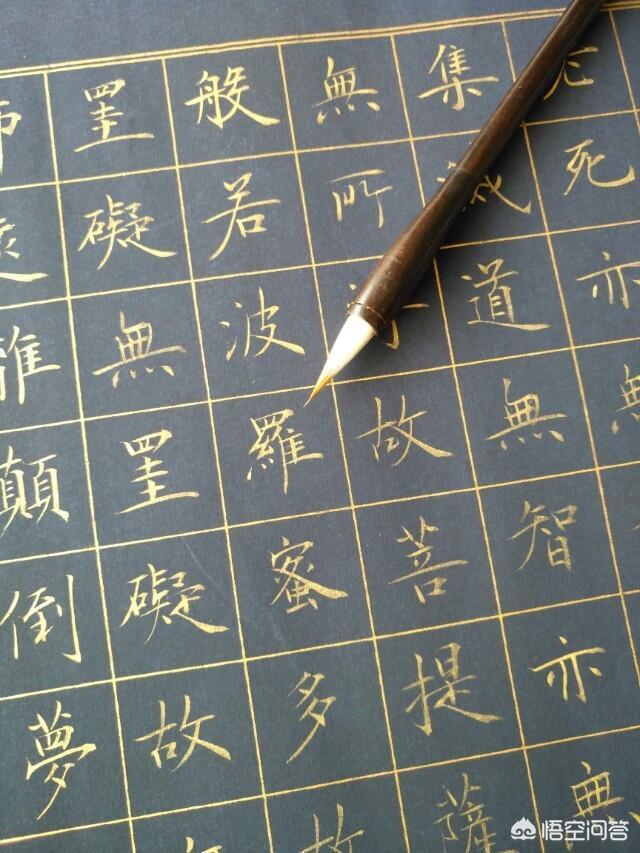 死亦無
集滅道無智亦無
無所故菩提薩
般若波羅蜜多故
罣礙無罣礙故
離顛倒夢
悟空问答